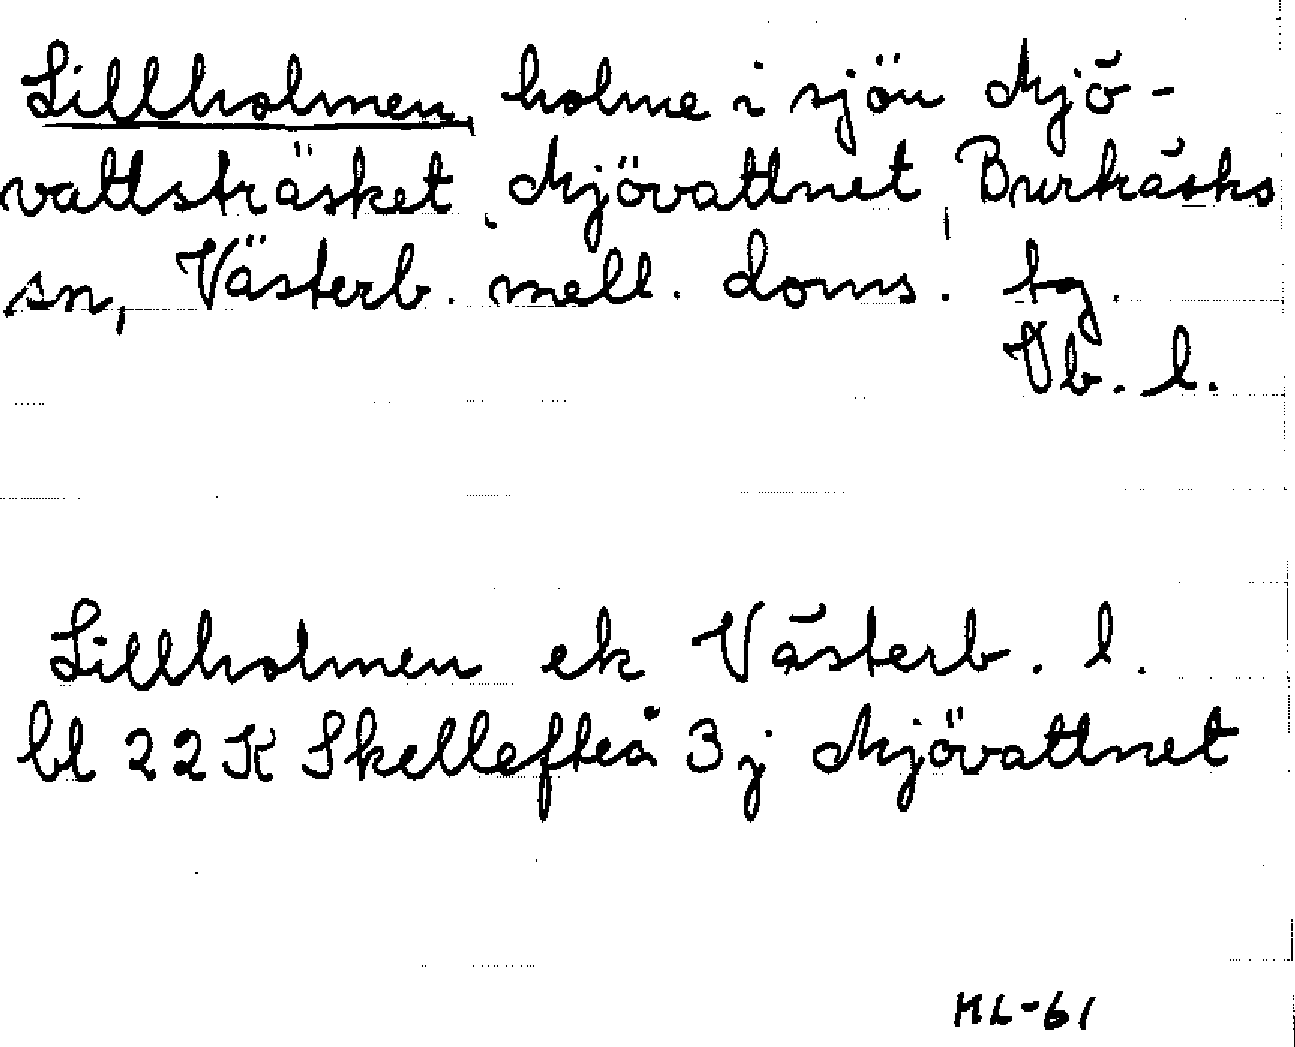 Lillholmen, holme i sjön Mjö-
vattsträsket, Mjövattnet, Burträsks
sn, Västerb. mell. doms. tg.
Vb. l.
Lillholmen ek Västerb. l.
bl 22K Skellefteå 3j Mjövattnet
HL-61